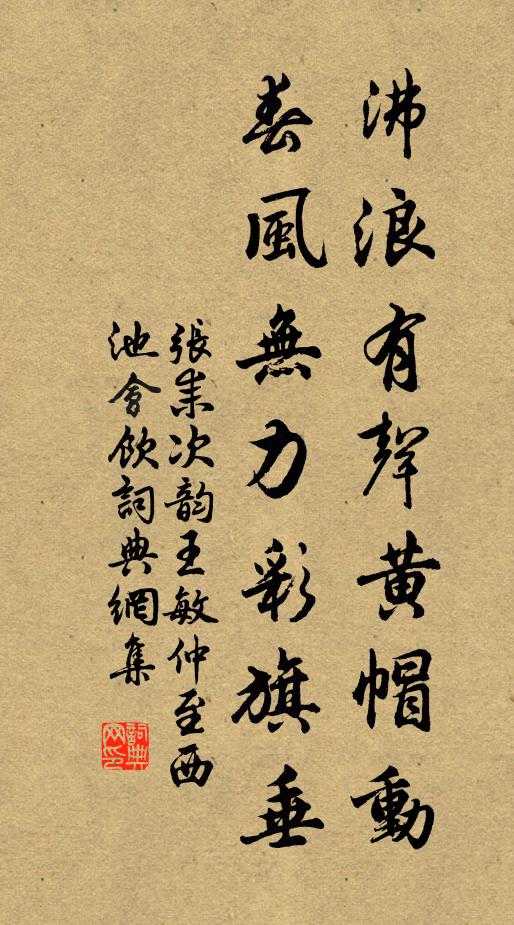 沸浪有聲黄帽動
春風無力彩旗垂
張耒次韵王敏仲至西
池會飲詞典網集
詞典網印